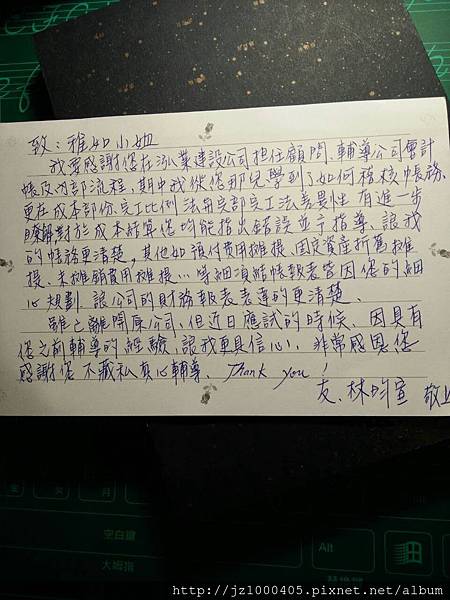 致：雅如小姐
我要感謝您在泓業建設公司担任顧問、輔導公司會計
帳及內部流程，期中我從您那兒學到了如何稽核帳務、
更在成本部份完工比例法與全部完工法差異性有進一步
瞭解對於成本結算您均能指出錯誤並予指導、讓我
的帳務更清楚，其他如預付費用攤提、固定資產折舊攤
提、未攤銷費用攤提…等細項結帳報表皆因您的細
心規劃、讓公司的財務報表表達的更清楚、
雖已離開原公司、但近日應試的時候、因具有
您之前輔導的經驗、讓我更具信心、非常感恩您
感謝您不藏私真心輔導、Thank you！
友、林昀萱 敬上
空白鍵
大姆指
Alt
http://jz1000405.pixnet.net/album